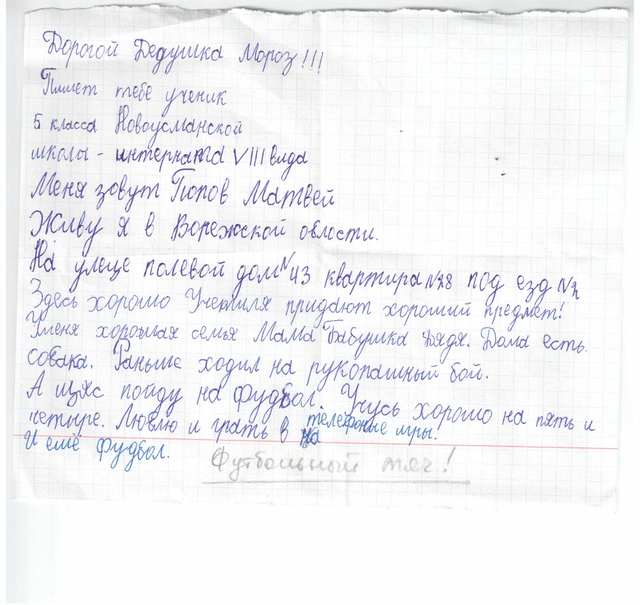 Дорогой Дедушка Мороз!!!
Пишет тебе ученик
5 класса Новоусманской
школы - интерната VIII вида
Меня зовут Попов Матвей
Живу я в Ворежской овлости.
На улеце полевой дом №43 квартира №28 под езд №2
Здесь хорошо Учетиля придают хороший предмет!
У меня хорошая семья Мама Бабушка Дядя. Дома есть
совака. Раньше ходил на рукопашный бой.
А щяс пойду на фудбол. Учусь хорошо на пять и
четыре. Люблю и грать в телефоные игры.
И ещё фудбол.
Футбольный мяч!